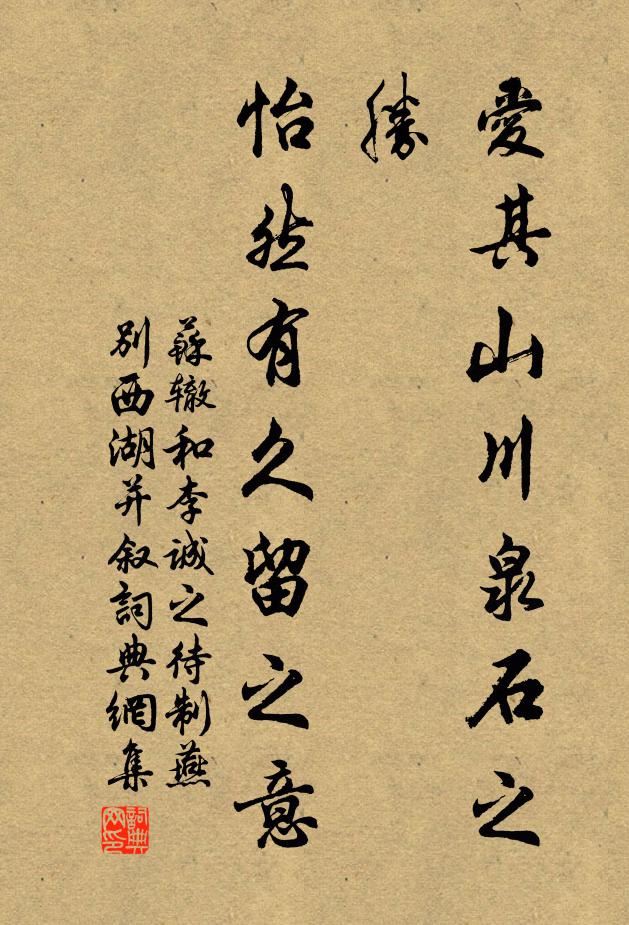 愛其山川泉石之
勝
怡然有久留之意
蘇辙和李誠之待制燕
别西湖并叙詞典網集
詞典网印